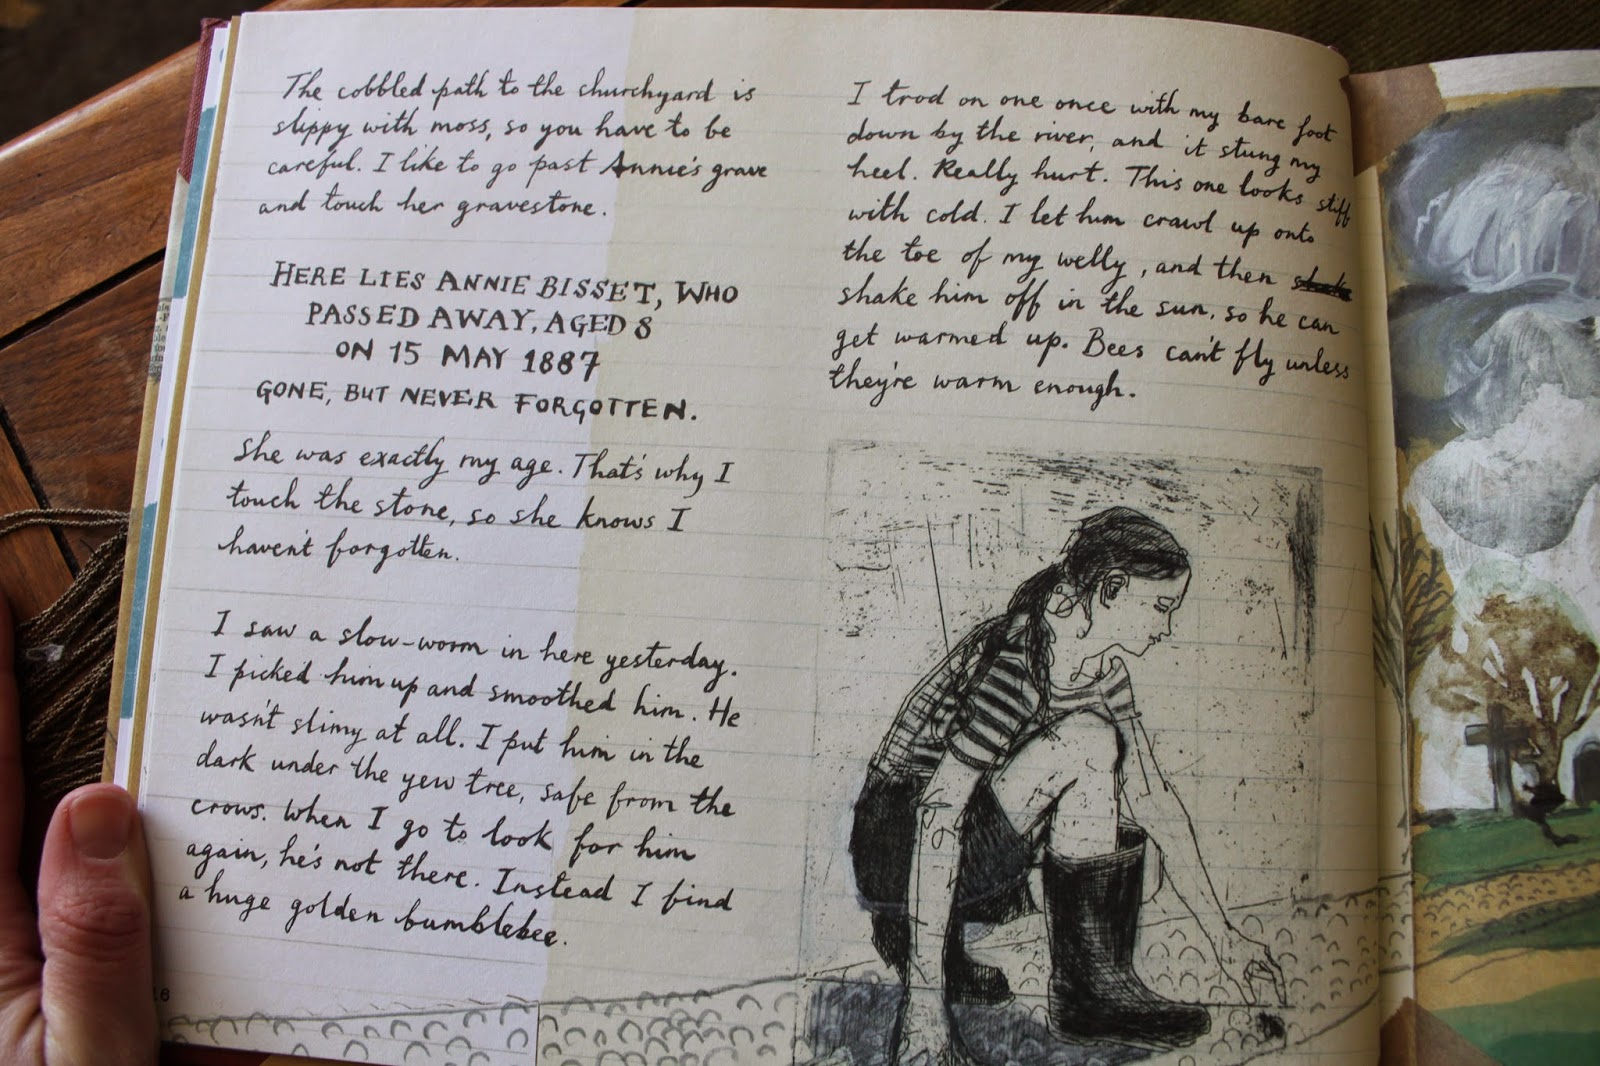 The cobbled path to the churchyard is
slippy with moss, so you have to be
careful. I like to go past Annie's grave
and touch her gravestone.
HERE LIES ANNIE BISSET, WHO
PASSED AWAY, AGED 8
ON 15 MAY 1887
GONE, BUT NEVER FORGOTTEN.
She was exactly my age. That's why I
touch the stone, so she knows I
haven't forgotten.
I saw a slow-worm in here yesterday.
I picked him up and smoothed him. He
wasn't slimy at all. I put him in the
dark under the yew tree, safe from the
crows. When I go to look for him
again, he's not there. Instead I find
a huge golden bumblebee.
I trod on one once with my bare foot
down by the river, and it stung my
heel. Really hurt. This one looks stiff
with cold. I let him crawl up onto
the toe of my welly, and then
shake him off in the sun, so he can
get warmed up. Bees can't fly unless
they're warm enough.